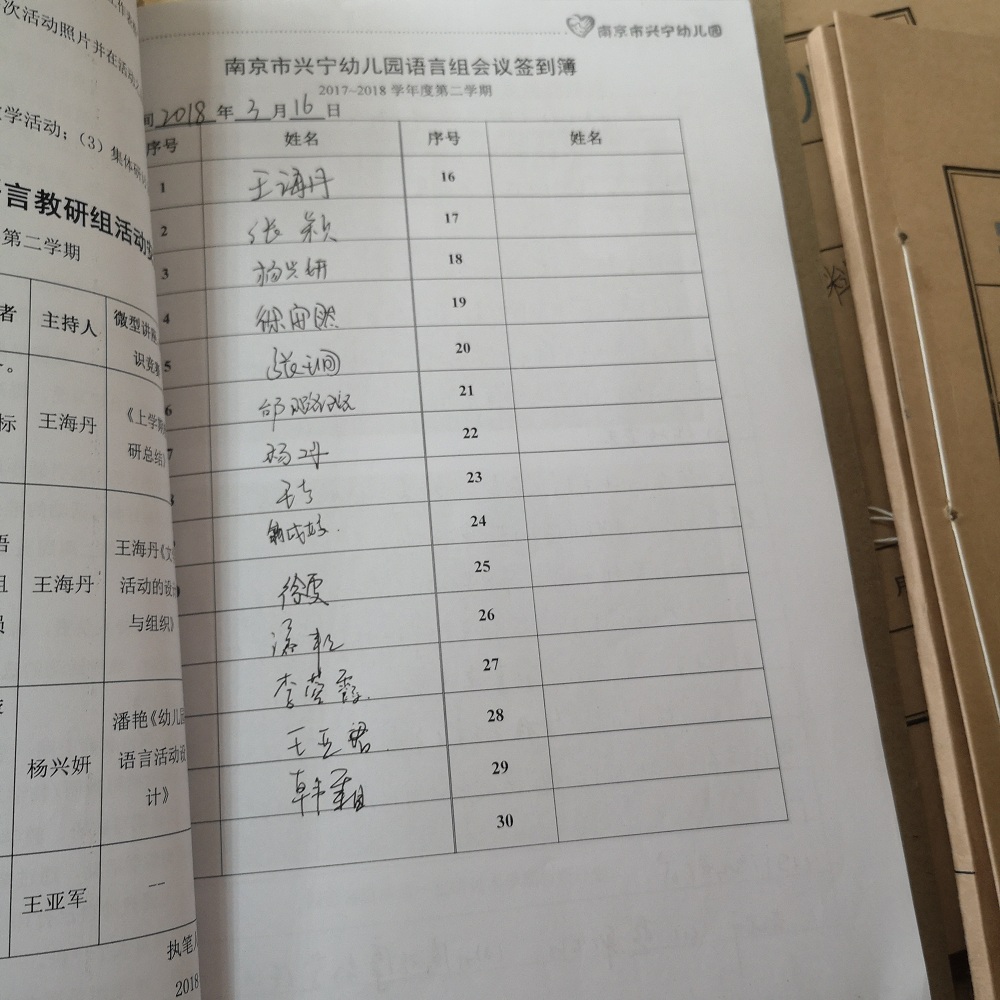 次活动照片并在活动
学活动;(3)集体研
言教研组活动
第二学期
者 主持人 微型讲座
识竞赛
标 王海丹 《上学期
研总结》
语 王海丹《文
组 王海丹 活动的设计
员 与组织》
杨兴妍 潘艳《幼儿园
语言活动设
计》
王亚军 —
执笔人
2018
南京市兴宁幼儿园
南京市兴宁幼儿园语言组会议签到簿
2017~2018 学年度第二学期
间 2018 年 3 月 16 日
序号 姓名 序号 姓名
1 王海丹 16
2 张颖 17
3 杨兴妍 18
4 徐安然 19
5 张 20
6 邰璐 21
7 杨丹 22
8 23
24
徐雯 25
潘艳 26
李莹霞 27
王亚 28
韩 29
30